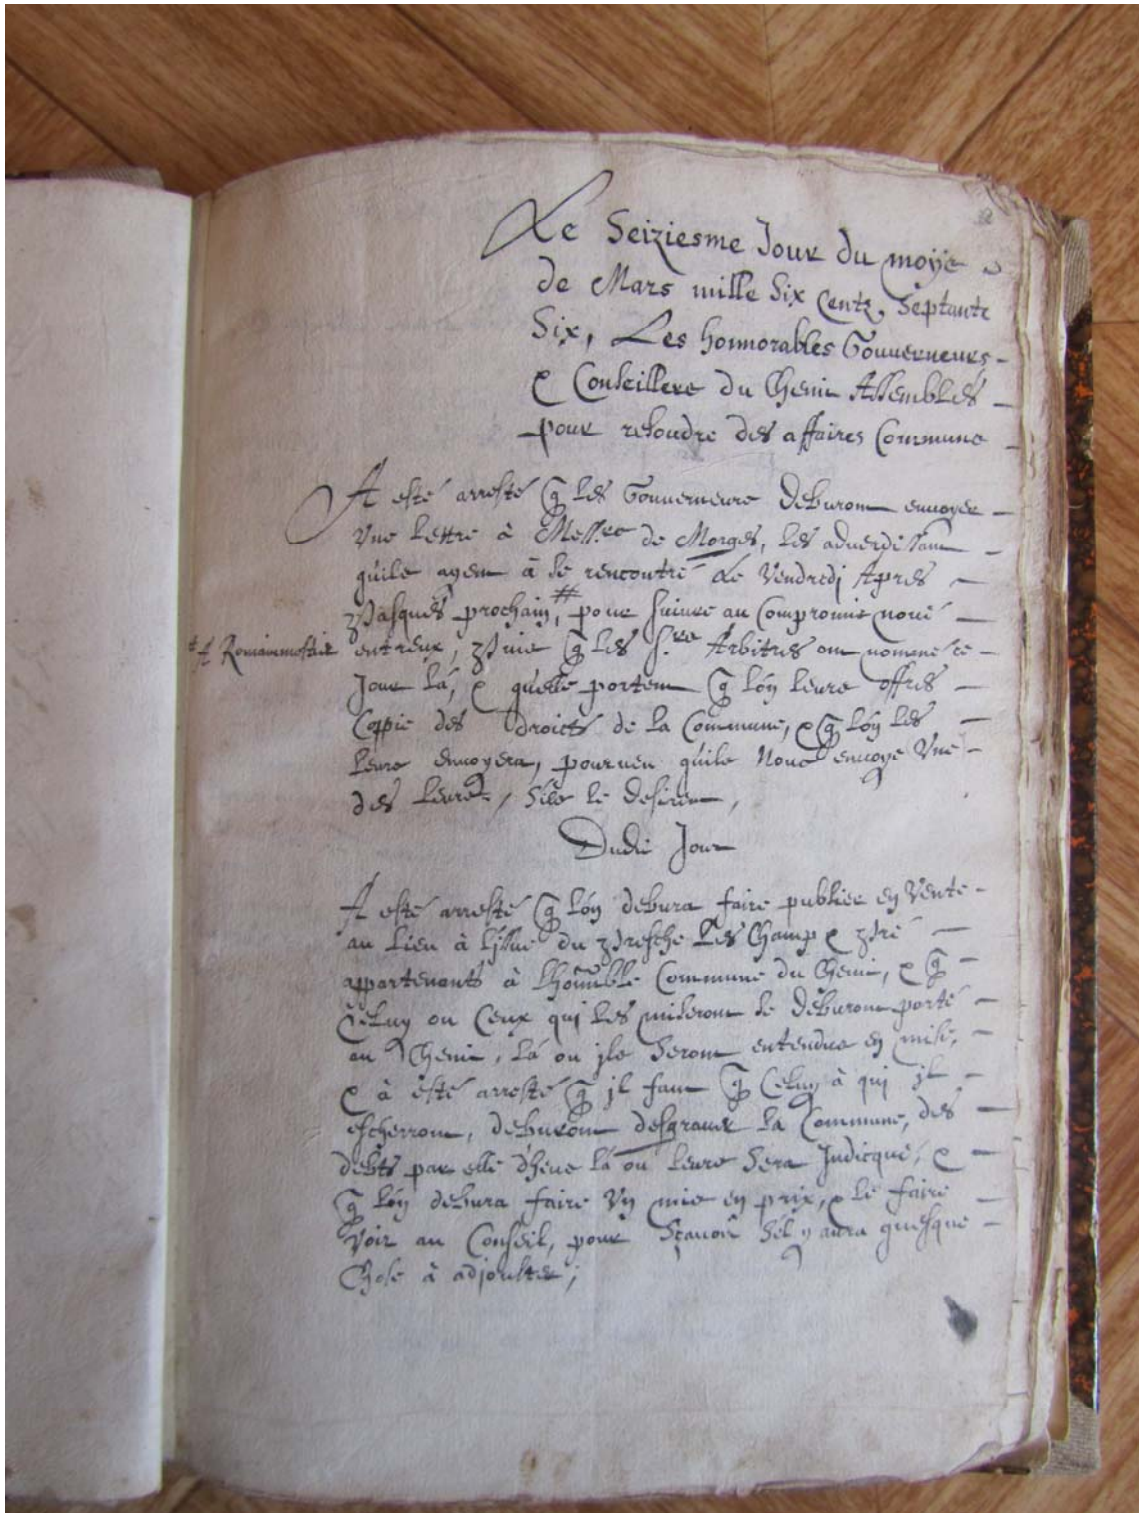 Le Seiziesme Jour du moys
de Mars mille Six Centz, Septante
Six, Les honnorables Gouverneurs
& Conseillers du Chenit Assemblés
pour resoudre des affaires Commune
A esté arresté q̃ les Gouverneurs deburont envoyer
Une lettre à Mess.rs de Morges, les advertissant
quils ayent à se rencontré Le Vendredj Apres
Pasques prochain, # pour suivre au Compromis
# A Romainmostier
entreux, Puis q̃ les S.rs Arbitres ont nommé ce
Jour là, & quelle portent q̃ lon leurs offres
Coppie des droicts de la Commune, & q̃ lon les
leurs envoyera, pourveu quils Nous envoye Une
des leurs, Sils le desirent,
Dudit Jour
A esté arresté q̃ lon debura faire publier en Vente
au lieu à lissue du Presche Les Champ & Pré
appartenants à lhonnble Commune du Chenit, & q̃
Celuy ou Ceux qui les miseront se deburont porté
au Chenit, là ou jls Seront entendus en mise,
& à esté arresté q̃ jl faut q̃ Celuy à qui jl
escherront, deburont desgraver la Commune, des
debts par elle dheus là ou leurs Sera Indicqué, &
q̃ lon debura faire Un mis en prix, & le faire
Voir au Conseil, pour Sçavoir Sel y aura quelque
Chose à adjouster;